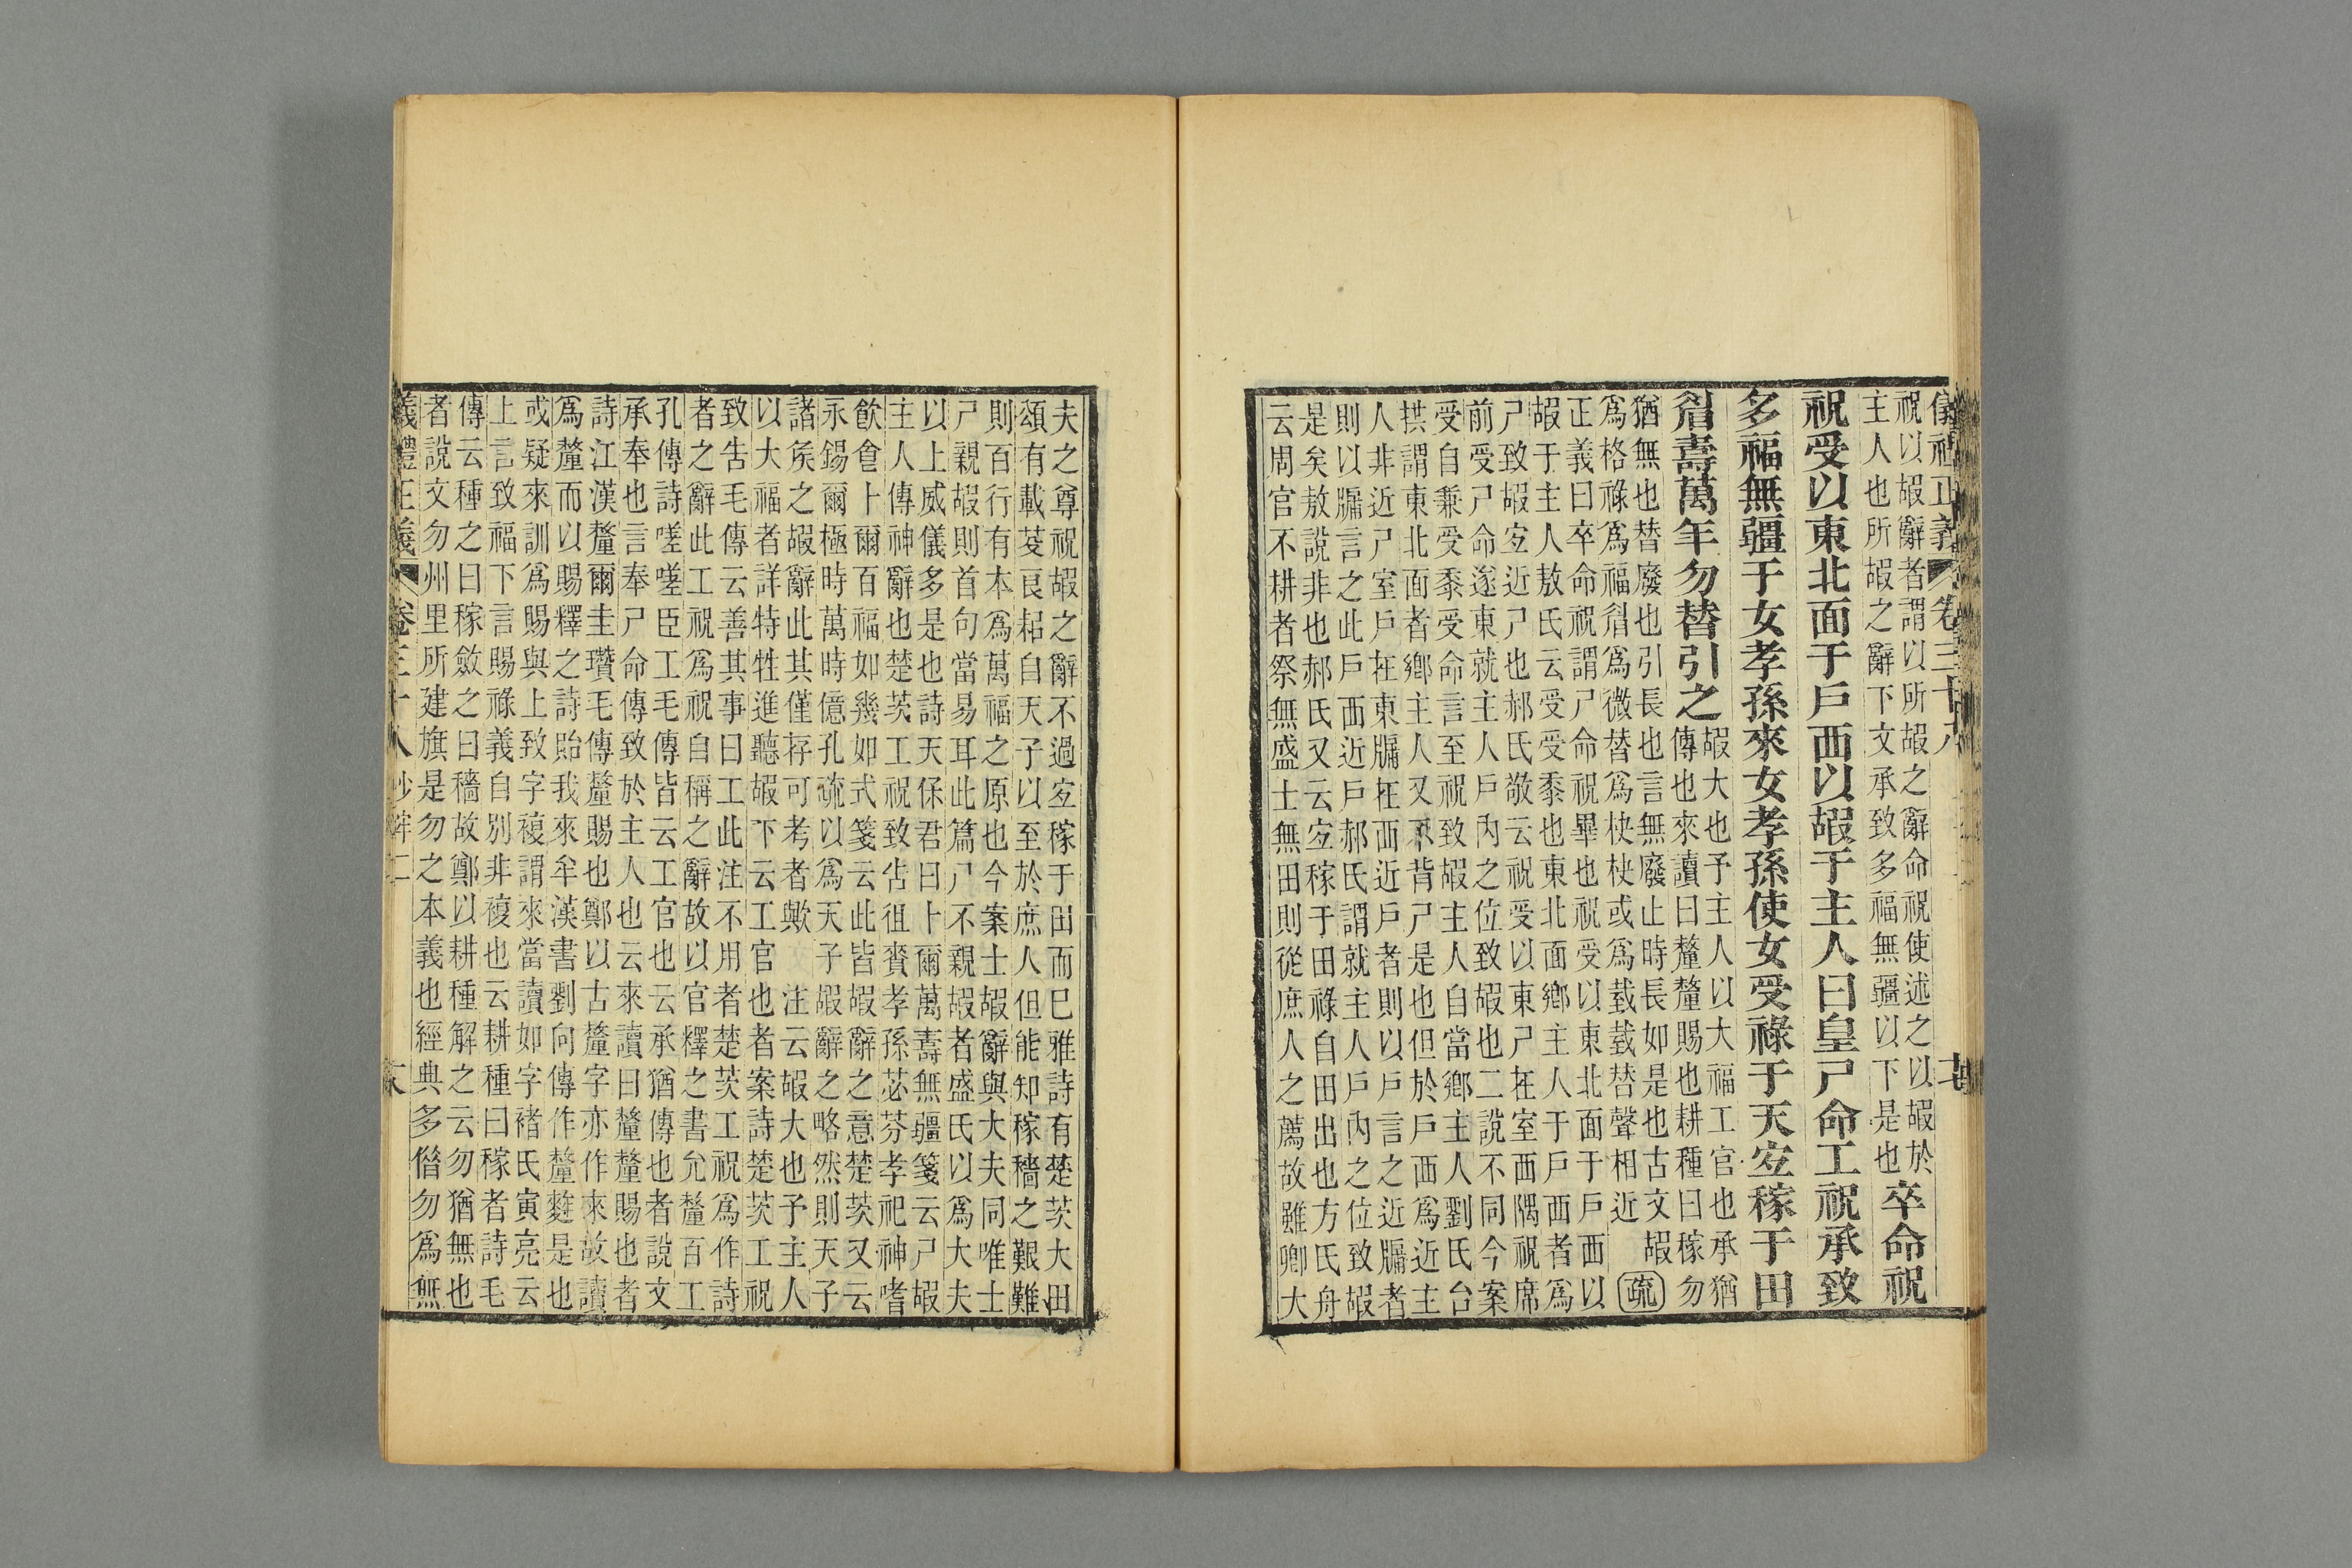 儀禮正義 卷三十八
祝以嘏辭者謂以所嘏之辭命祝使述之以嘏於
主人也所嘏之辭下文承致多福無疆以下是也
卒命祝
祝受以東北面于戶西以嘏于主人曰皇尸命工祝承致
多福無疆于女孝孫來女孝孫使女受祿于天宜稼于田
眉壽萬年勿替引之
嘏大也予主人以大福工官也承猶
傳也來讀曰釐釐賜也耕種曰稼勿
猶無也替廢也引長也言無廢止時長如是也古文嘏
爲格祿爲福眉爲微替爲袂袂或爲臷臷替聲相近
疏
正義曰卒命祝謂尸命祝畢也祝受以東北面于戶西以
嘏于主人敖氏云受受黍也東北面鄉主人于戶西者爲
尸致嘏宜近尸也郝氏敬云祝受以東尸在室西隅祝席
前受尸命遂東就主人戶內之位致嘏也二說不同今案
受自兼受黍受命言至祝致嘏主人自當鄉主人劉氏台
拱謂東北面者鄉主人又不背尸是也但於戶西爲近主
人非近尸室戶在東牖在西近戶者則以戶言之近牖者
則以牖言之此戶西近戶郝氏謂就主人戶內之位致嘏
是矣敖說非也郝氏又云宜稼于田祿自田出也方氏舟
云周官不耕者祭無盛士無田則從庶人之薦故雖卿大
夫之尊祝嘏之辭不過宜稼于田而已雅詩有楚茨大田
頌有載芟良耜自天子以至於庶人但能知稼穡之艱難
則百行有本爲萬福之原也今案士嘏辭與大夫同唯士
尸親嘏則首句當易耳此篇尸不親嘏者盛氏以爲大夫
以上威儀多是也詩天保君曰卜爾萬壽無疆箋云尸嘏
主人傳神辭也楚茨工祝致告徂賚孝孫苾芬孝祀神嗜
飮食卜爾百福如幾如式箋云此皆嘏辭之意楚茨又云
永錫爾極時萬時億孔疏以爲天子嘏辭之略然則天子
諸侯之嘏辭此其僅存可考者歟 注云嘏大也予主人
以大福者詳特牲進聽嘏下云工官也者案詩楚茨工祝
致告毛傳云善其事曰工此注不用者楚茨工祝爲作詩
者之辭此工祝爲祝自稱之辭故以官釋之書允釐百工
孔傳詩嗟嗟臣工毛傳皆云工官也云承猶傳也者說文
承奉也言奉尸命傳致於主人也云來讀曰釐釐賜也者
詩江漢釐爾圭瓚毛傳釐賜也鄭以古釐字亦作來故讀
爲釐而以賜釋之詩貽我來牟漢書劉向傳作釐麰是也
或疑來訓爲賜與上致字複謂來當讀如字褚氏寅亮云
上言致福下言賜祿義自別非複也云耕種曰稼者詩毛
傳云種之曰稼斂之曰穡故鄭以耕種解之云勿猶無也
者說文勿州里所建旗是勿之本義也經典多借勿爲無
儀禮正義 卷三十八